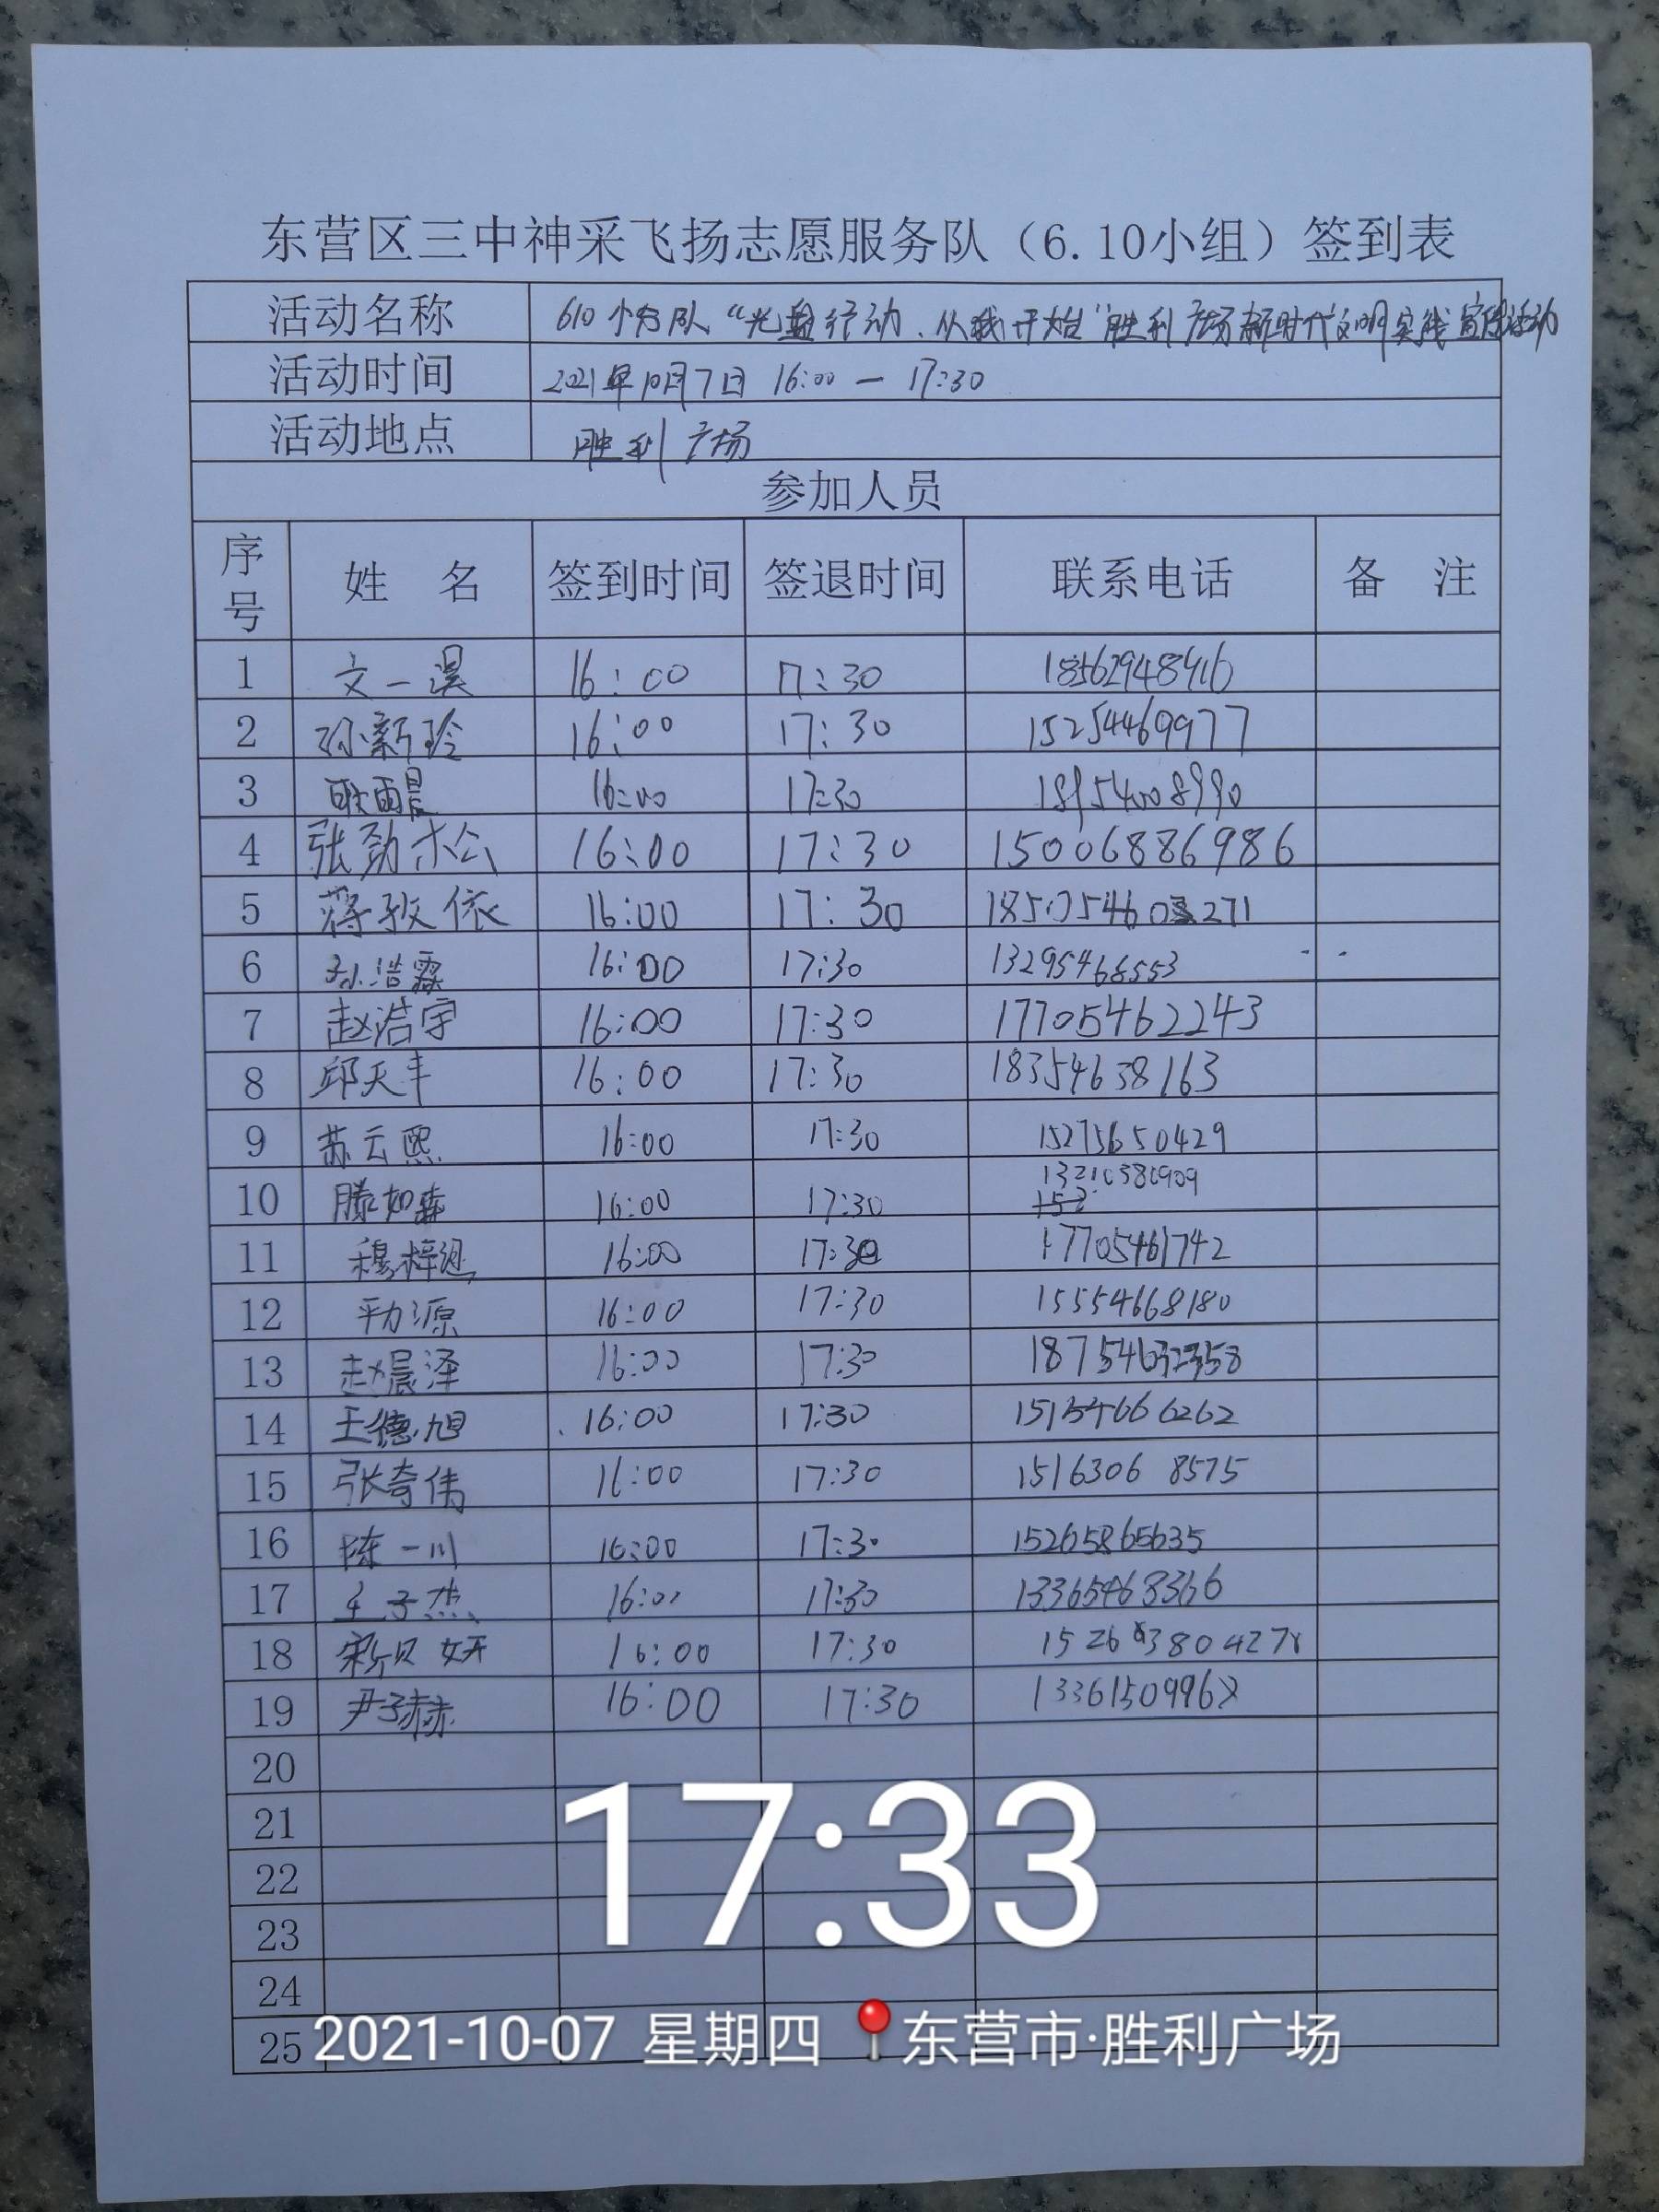 东营区三中神采飞扬志愿服务队（6.10小组）签到表
活动名称 610小分队“光盘行动、从我开始”胜利广场新时代文明实践宣传活动
活动时间 2021年10月7日 16:00 — 17:30
活动地点 胜利广场
参加人员
序号 姓 名 签到时间 签退时间 联系电话 备 注
1 文一淏 16:00 17:30
2 孙新玲 16:00 17:30 15254469977
3 雨晨 16:00 17:30 18954008990
4 张劲松 16:00 17:30 15006886986
5 蒋孜依 16:00 17:30
6 孙浩霖 16:00 17:30 13295468553
7 赵浩宇 16:00 17:30 17705462243
8 邱天丰 16:00 17:30 18354638163
9 苏云熙 16:00 17:30 15275650429
10 滕如森 16:00 17:30
11 穆梓逊 16:00 17:30 17705461742
12 源 16:00 17:30 15554668180
13 赵晨泽 16:00 17:30
14 王德旭 16:00 17:30 15154666262
15 张奇伟 16:00 17:30 15163068575
16 陈一川 16:00 17:30 15265865635
17 王子杰 16:00 17:30 13365468366
18 贝妍 16:00 17:30
19 尹子赫 16:00 17:30
20
21
22
23
24
25
17:33
2021-10-07 星期四 东营市·胜利广场